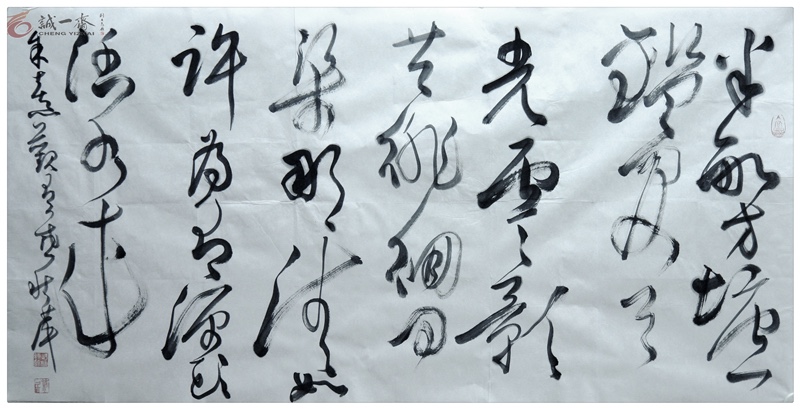 誠一齋
CHENG YI ZHAI
半畝方塘一
鑑開天
光雲影
共徘徊問
渠那得清如
許為有源頭
活水来
朱熹觀書有感